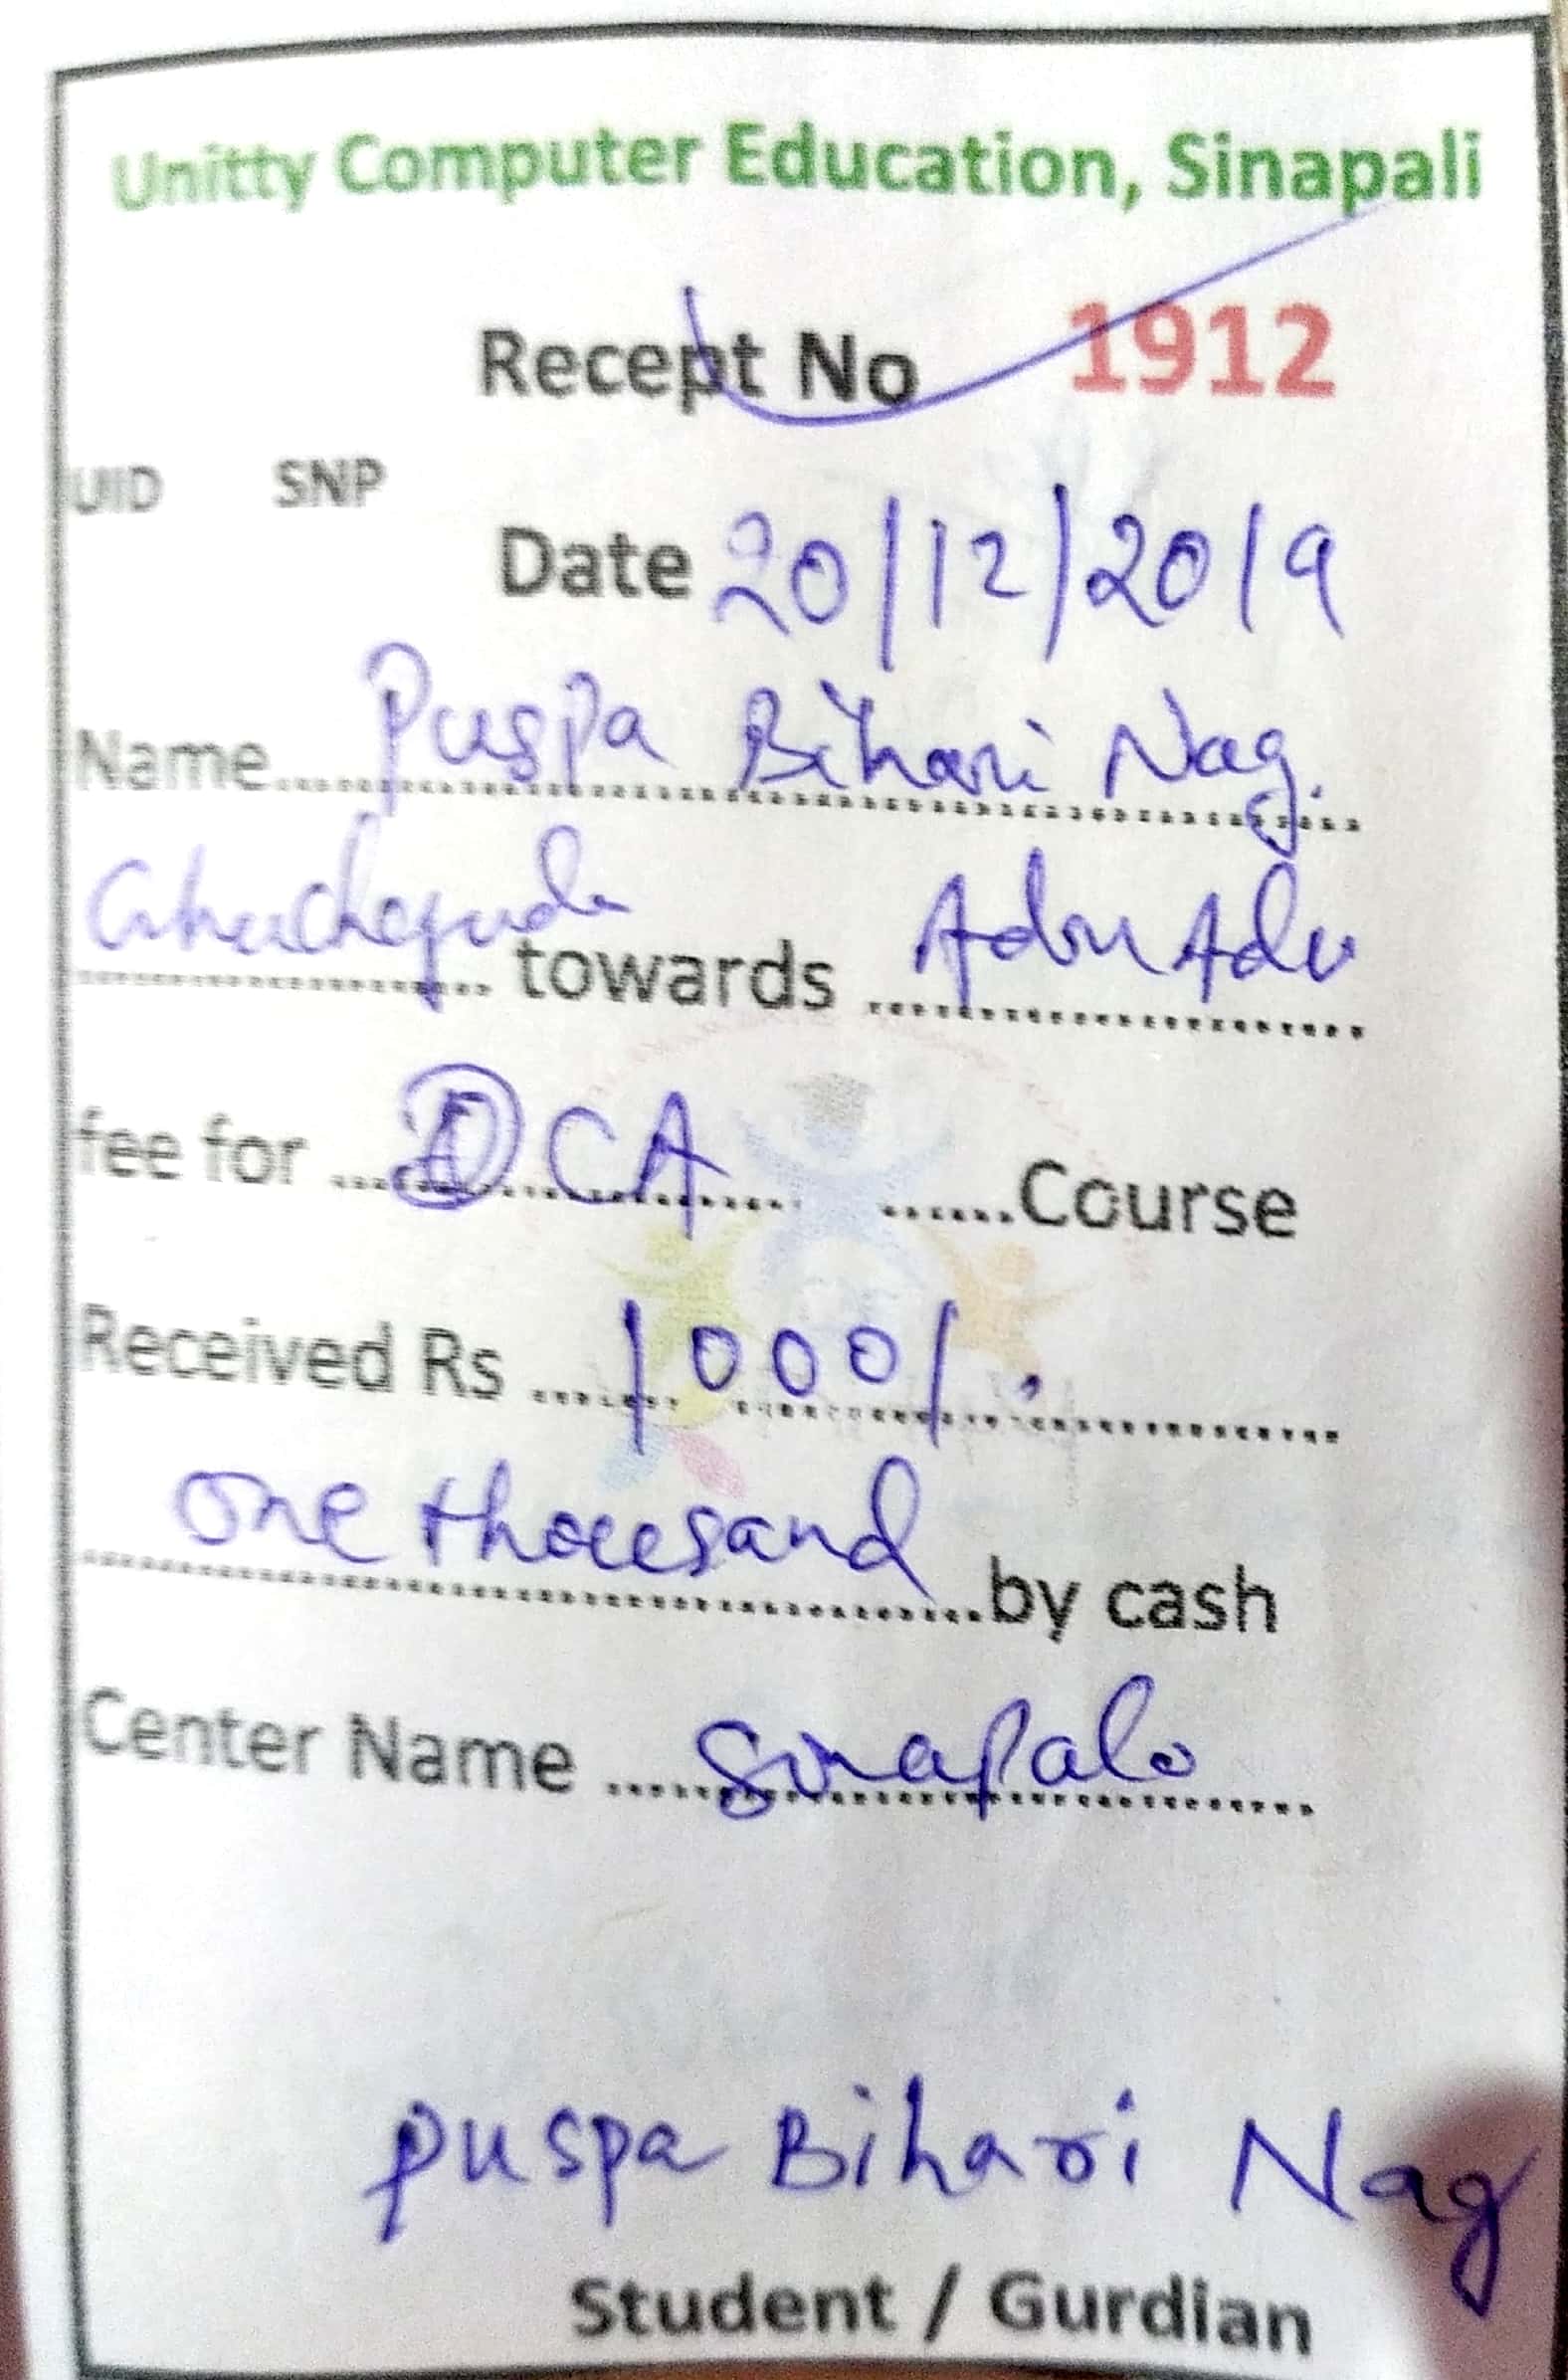 Unitty Computer Education, Sinapali
Recept No 1912
UID SNP
Date 20/12/2019
Name Puspa Bihari Nag.
towards
fee for DCA Course
Received Rs 1000/.
one thousand by cash
Center Name Sinapali
puspa Bihari Nag
Student / Gurdian